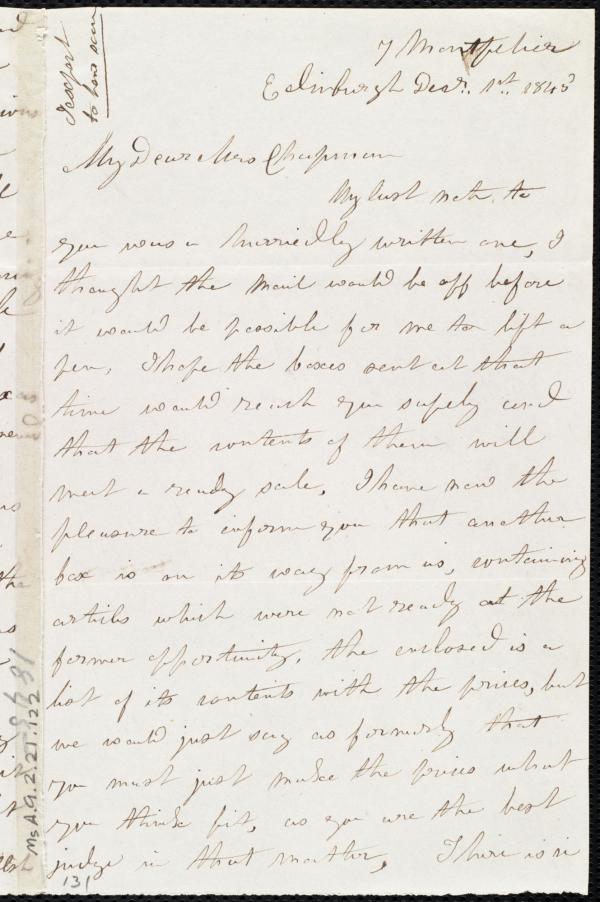 7 Montpelier
Edinburgh Decr. 1st. 1843
My Dear Mrs Chapman
My last note to
you was a hurriedly written one, I
thought the Mail would be off before
it would be possible for me to lift a
pen, I hope the boxes sent at that
time would reach you safely and
that the contents of them will
meet a ready sale, I have now the
pleasure to inform you that another
box is on its way from us, containing
articles which were not ready at the
former opportunity, the enclosed is a
list of its contents with the prices, but
we would just say as formerly that
you must just make the prices what
you think fit, as you are the best
judge in that matter, There is in
to have seen
Ms A.9.2.21.122
131